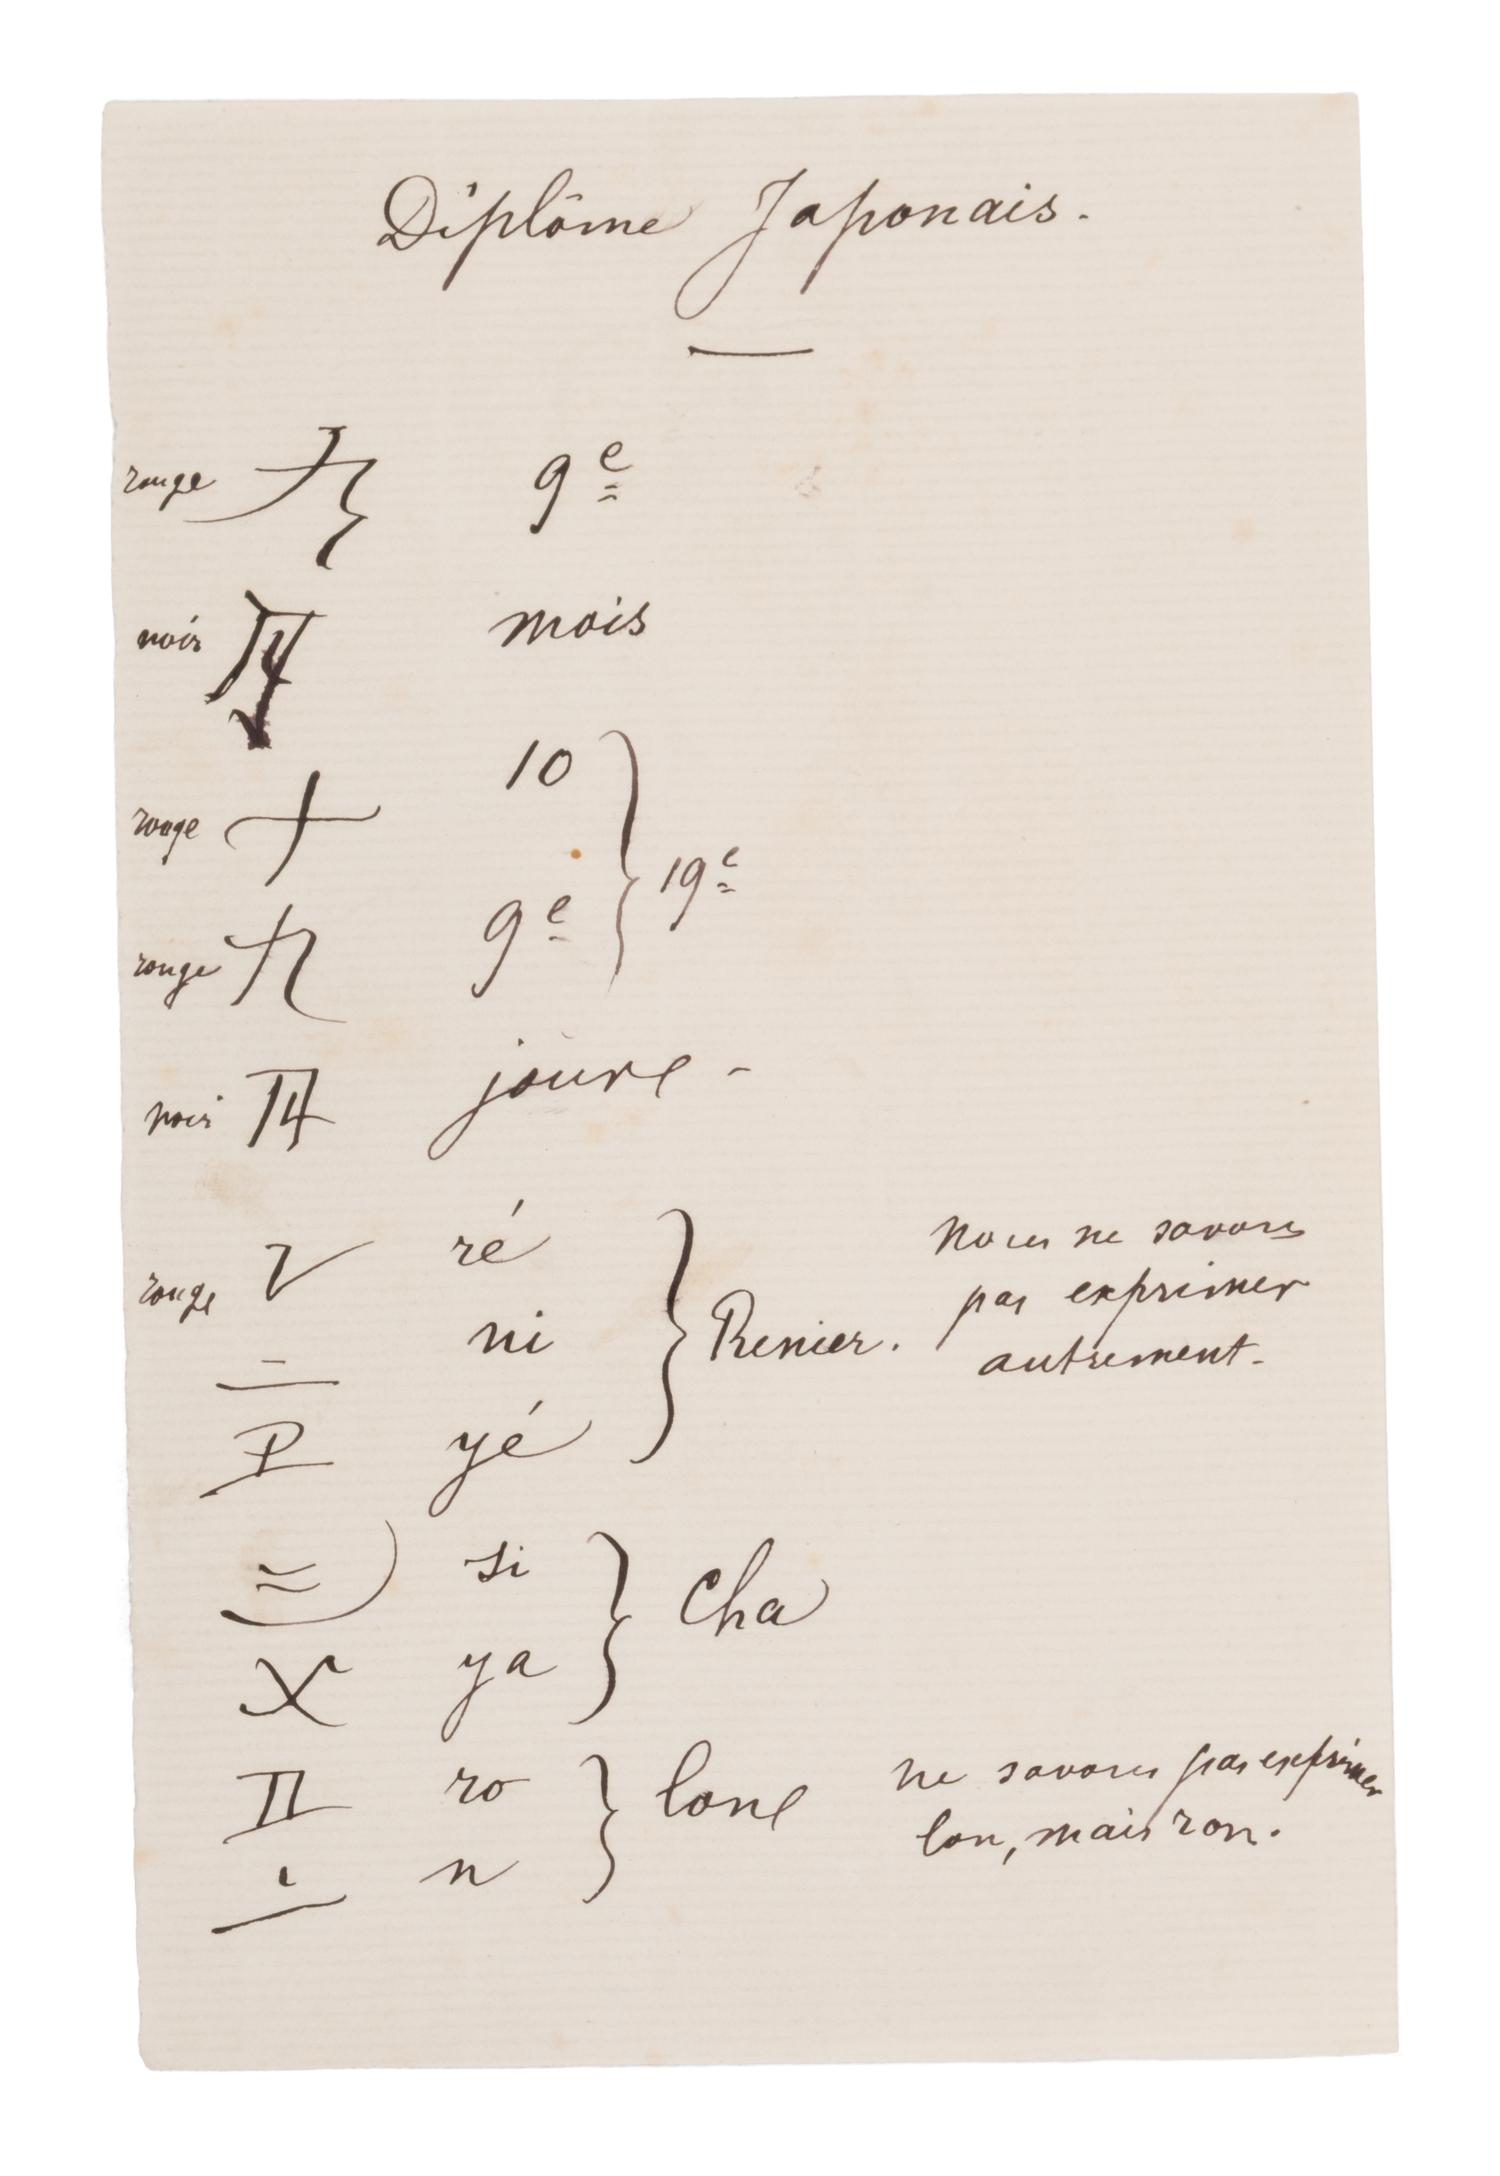 Diplôme Japonais.
rouge 九 9e
noir 月 mois
rouge 十 10
19e
rouge 九 9e
noir jours -
rouge レ ré
ニ ni
Renier.
エ yé
シ si
Cha
ヤ ya
ロ ro
lone
ン n
Nous ne savons
pas exprimer
autrement.
ne savons pas exprimer
lon, mais ron.